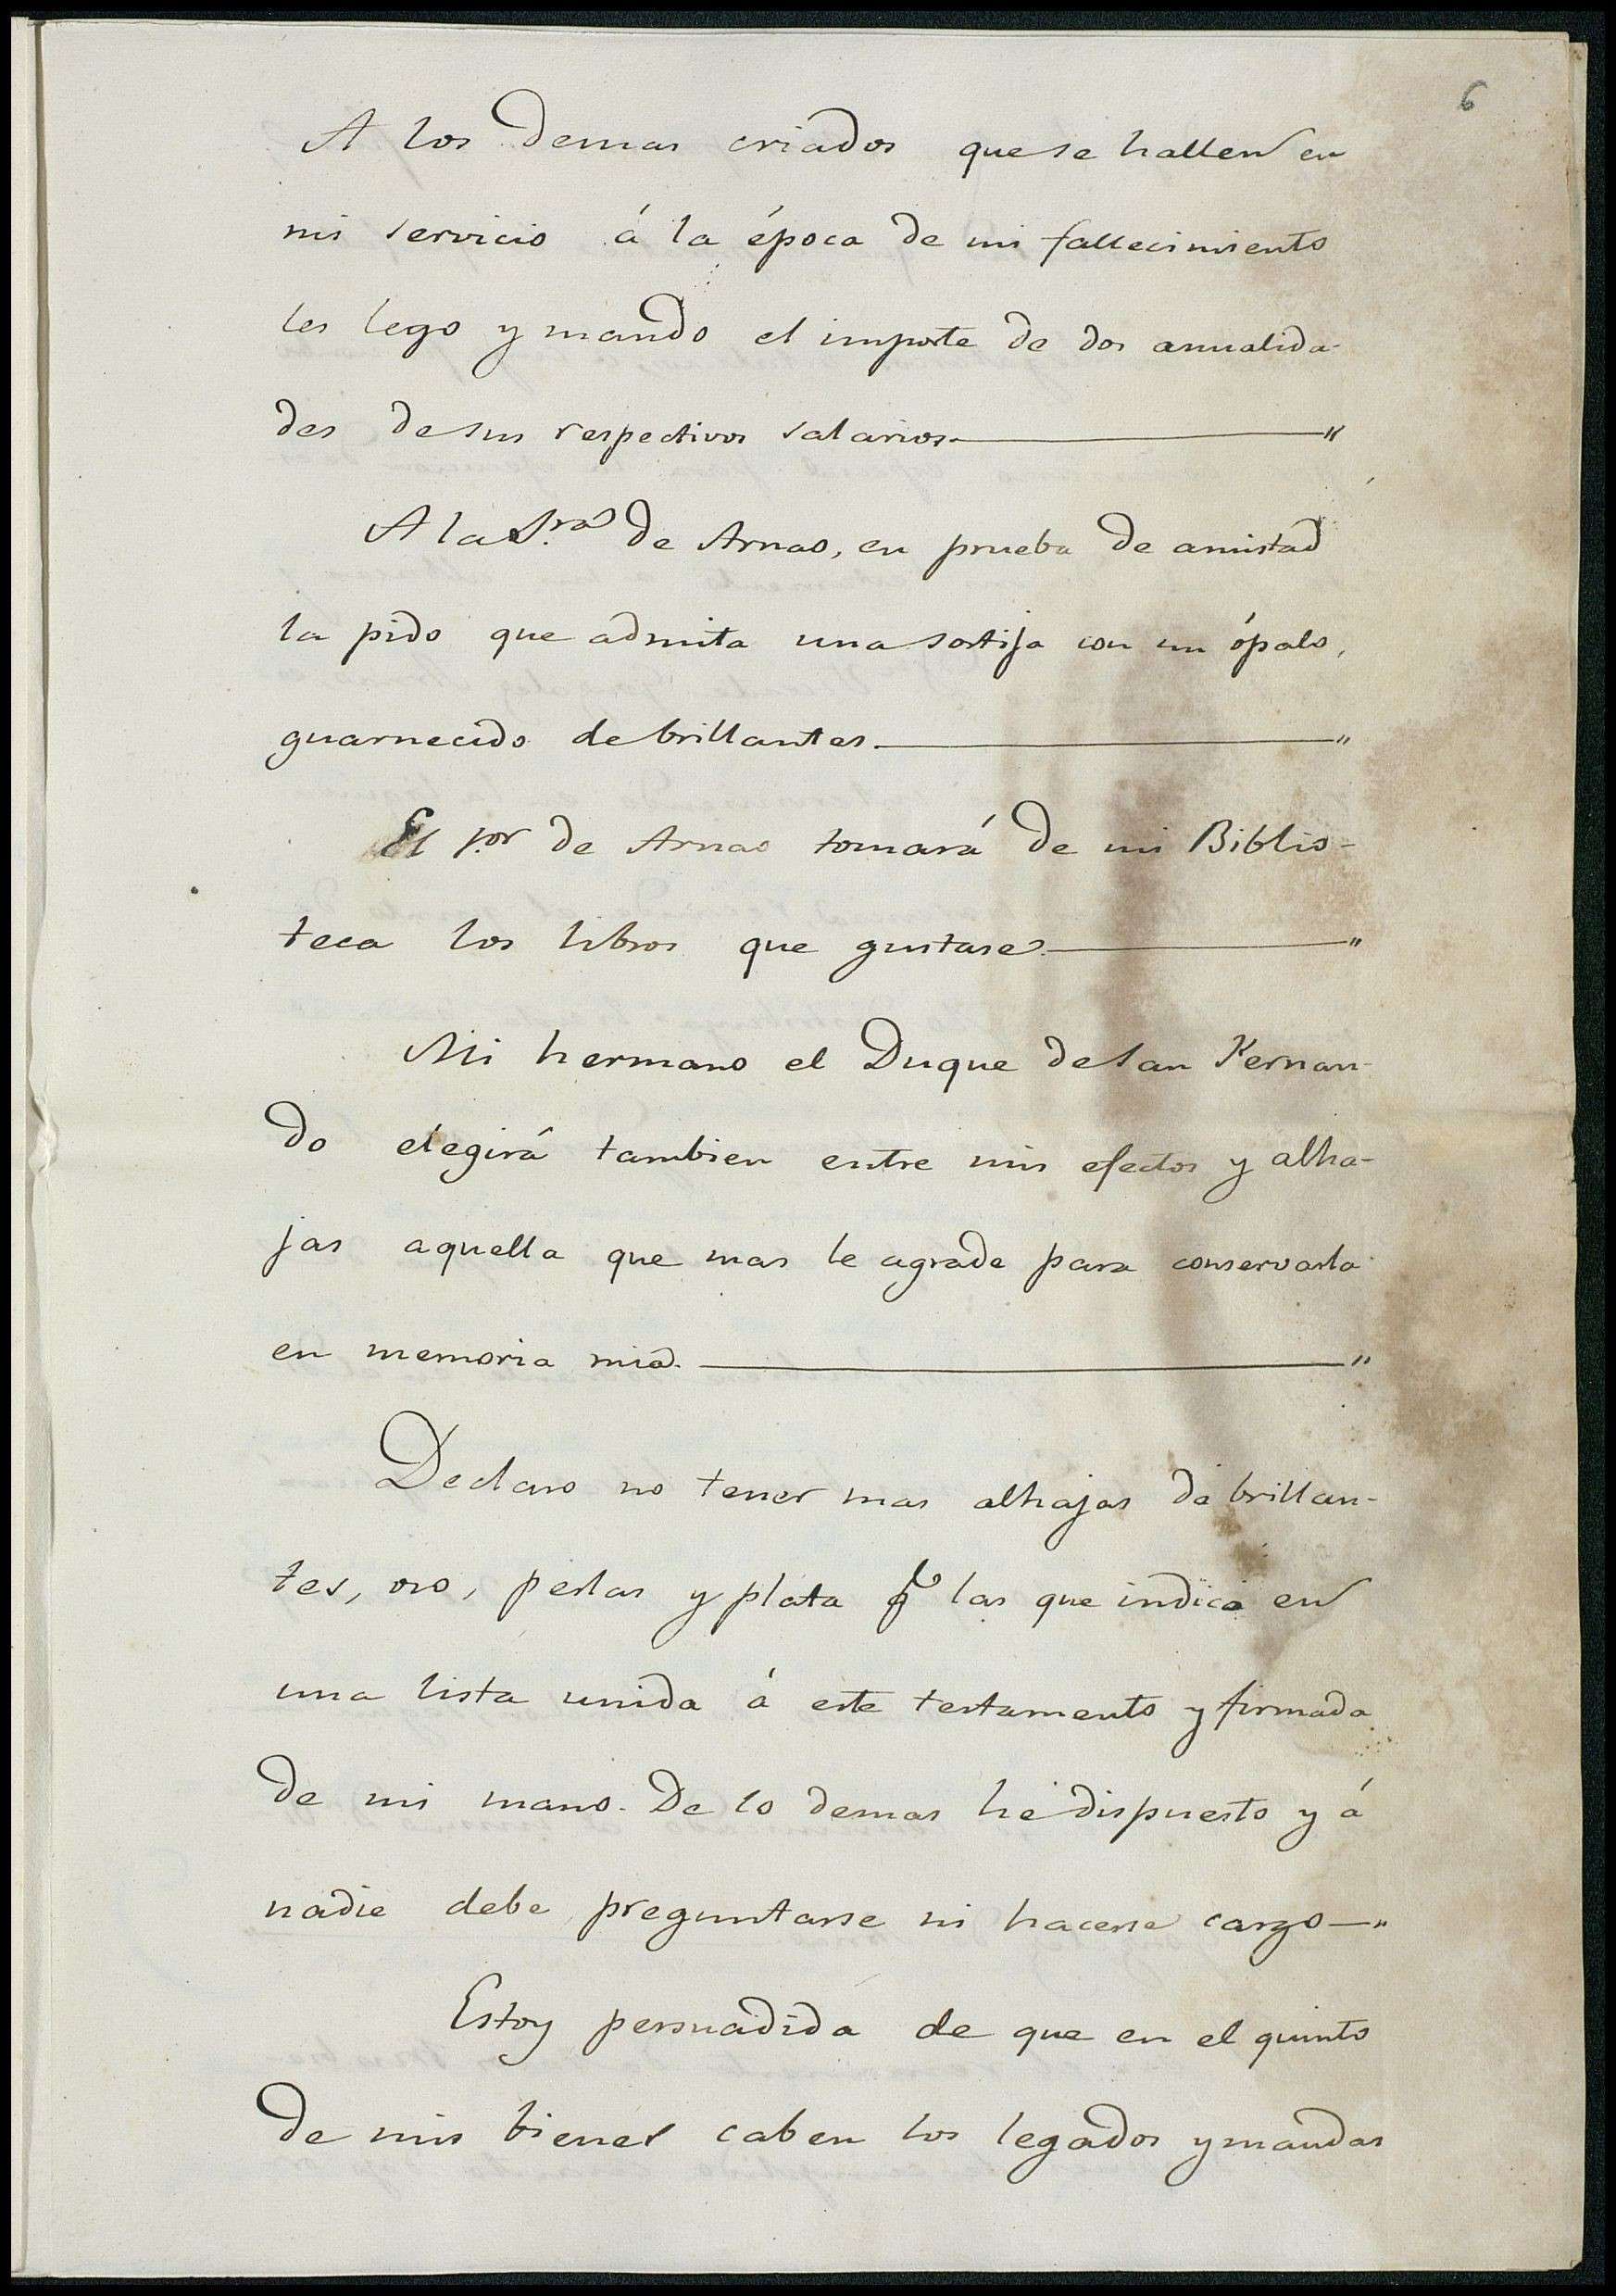 6
A los demas criados que se hallen en
mi servicio á la época de mi fallecimiento
les lego y mando el importe de dos anualida-
des de sus respectivos salarios.———"
A la S.ra de Arnao, en prueba de amistad
la pido que admita una sortija con un ópalo,
guarnecido de brillantes.———"
El s.or de Arnao tomará de mi Biblio-
teca los libros que gustase.———"
Mi hermano el Duque de San Fernan-
do elegirá tambien entre mis efectos y alha-
jas aquella que mas le agrade para conservarla
en memoria mia.———"
Declaro no tener mas alhajas de brillan-
tes, oro, perlas y plata q las que indico en
una lista unida á este testamento y firmada
de mi mano. De lo demas he dispuesto y á
nadie debe preguntarse ni hacerse cargo—"
Estoy persuadida de que en el quinto
de mis bienes caben los legados y mandas